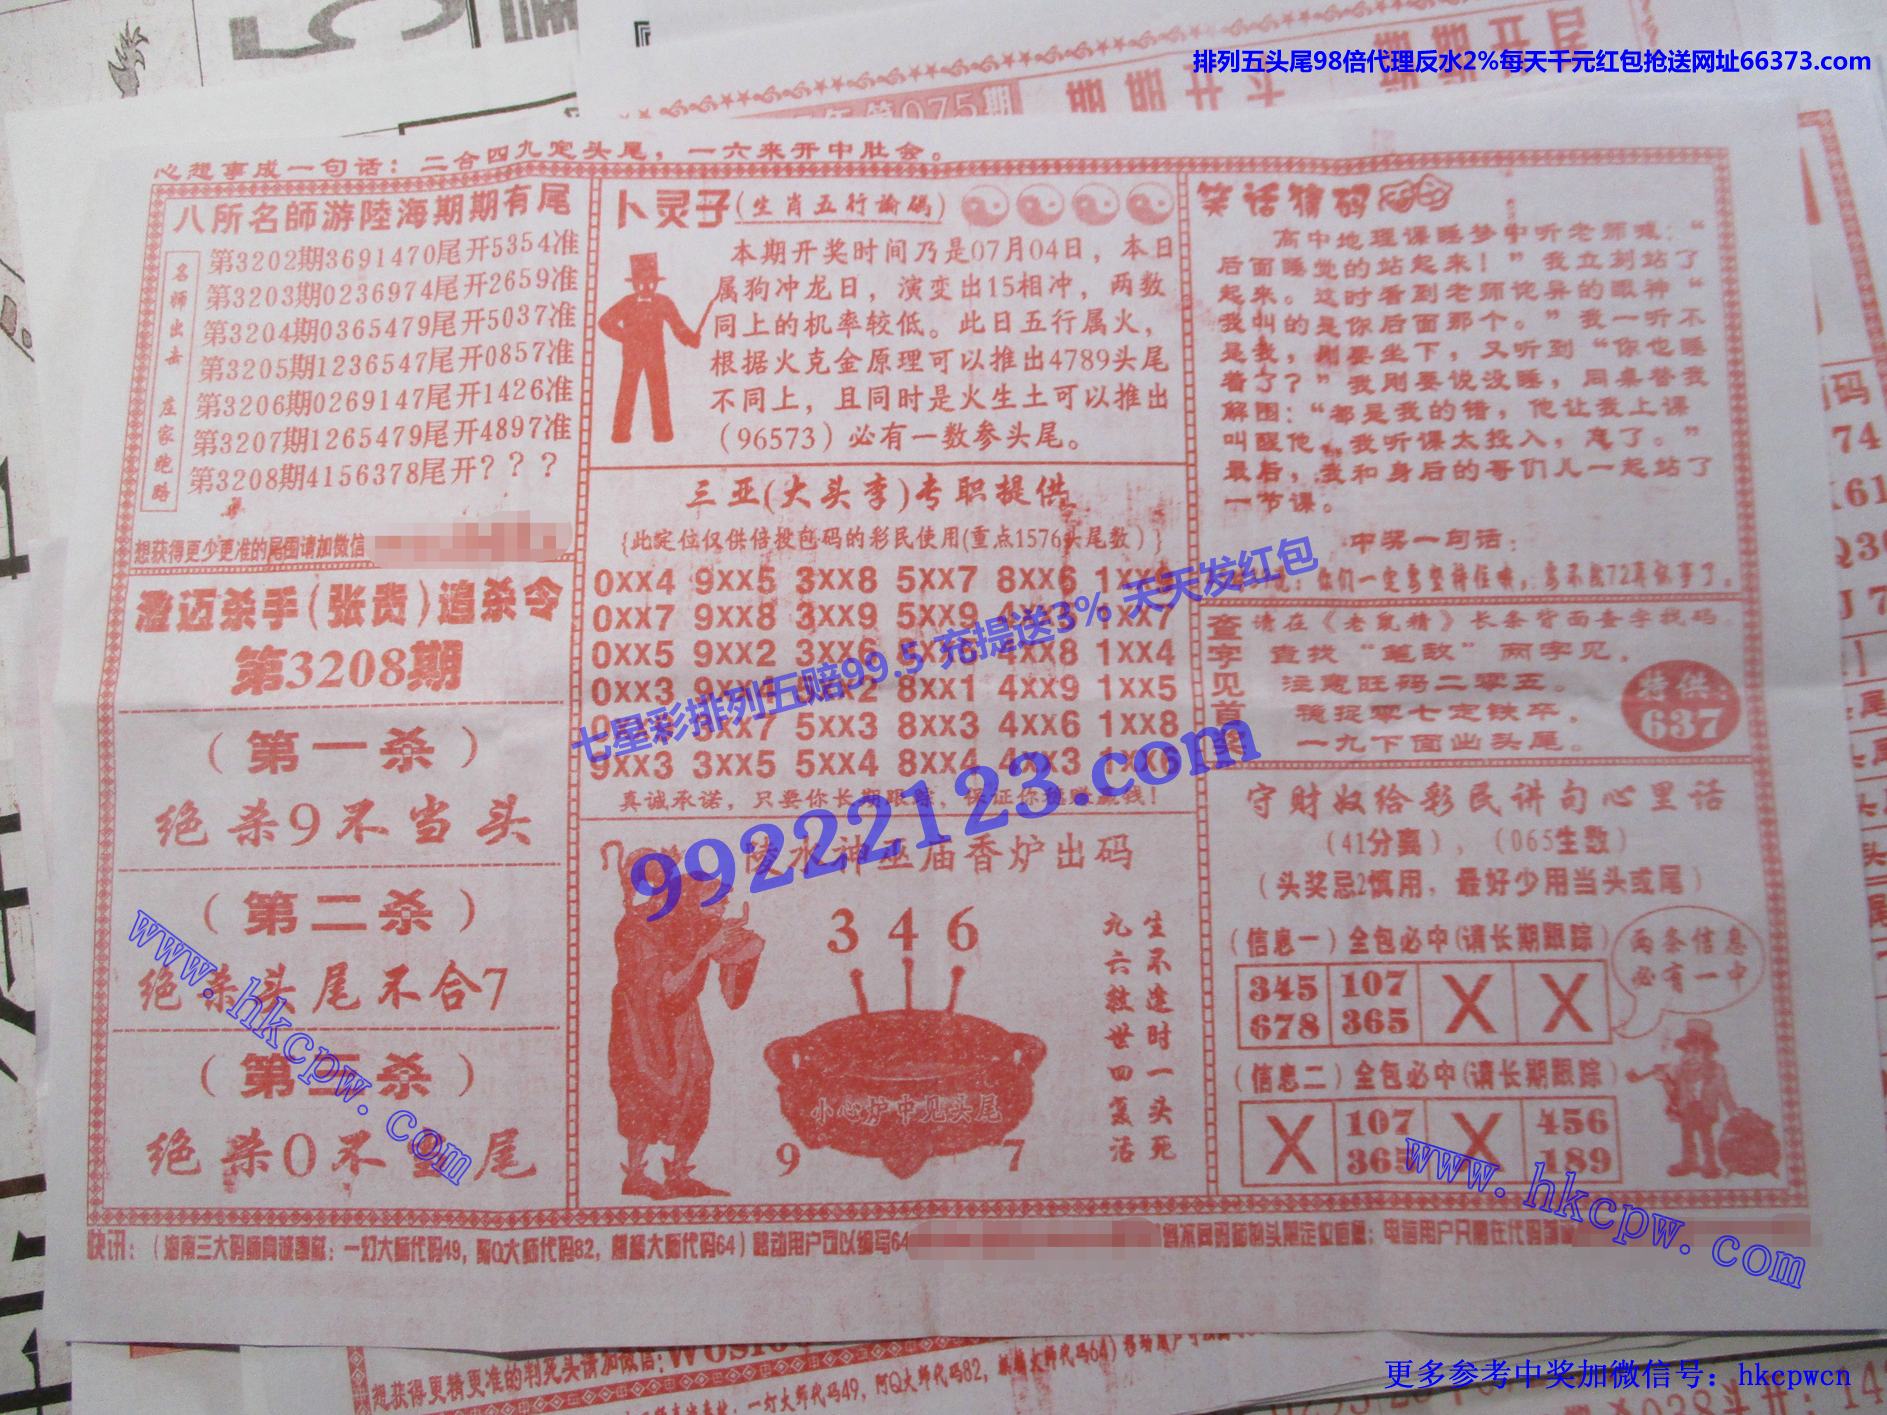 排列五头尾98倍代理反水2%每天千元红包抢送网址66373.com
第075期
心想事成一句话：二合四九定头尾，一六来开中肚会。
八所名師游陸海期期有尾
名师出击 庄家跑路
第3202期3691470尾开5354准
第3203期0236974尾开2659准
第3204期0365479尾开5037准
第3205期1236547尾开0857准
第3206期0269147尾开1426准
第3207期1265479尾开4897准
第3208期4156378尾开？？？
想获得更少更准的尾围请加微信
澄迈杀手(张贵)追杀令
第3208期
（第一杀）
绝杀9不当头
（第二杀）
绝杀头尾不合7
（第三杀）
绝杀0不 尾
卜灵子(生肖五行论码)
本期开奖时间乃是07月04日，本日
属狗冲龙日，演变出15相冲，两数
同上的机率较低。此日五行属火，
根据火克金原理可以推出4789头尾
不同上，且同时是火生土可以推出
（96573）必有一数参头尾。
三亚(大头李)专职提供
{此定位仅供倍投包码的彩民使用(重点1576头尾数)}
0XX4 9XX5 3XX8 5XX7 8XX6
0XX7 9XX8 3XX9 5XX9 1XX7
0XX5 9XX2 3XX6 4XX8 1XX4
0XX3 8XX1 4XX9 1XX5
5XX3 8XX3 4XX6 1XX8
9XX3 3XX5 5XX4 8XX4 4XX3 1XX6
真诚承诺，只要你长期跟踪，保证你稳赚赢钱！
七星彩排列五赔99.5 充提送3% 天天发红包
99222123.com
陵水神巫庙香炉出码
3 4 6
生不逢时一头死
九六救世四复活
小心炉中见头尾
9 7
笑话猜码
高中地理课睡梦中听老师喊：“
后面睡觉的站起来！”我立刻站了
起来。这时看到老师诧异的眼神“
我叫的是你后面那个。”我一听不
是我，刚要坐下，又听到“你也睡
着了？”我刚要说没睡，同桌替我
解围：“都是我的错，他让我上课
叫醒他，我听课太投入，忘了。”
最后，我和身后的哥们儿一起站了
一节课。
中奖一句话：
查字见首奖
请在《老鼠精》长条背面查字找码。
查找“笔敌”两字见，
注意旺码二零五。
稳捉零七定铁卒，
一九下面出头尾。
特供：
637
守财奴给彩民讲句心里话
（41分离），（065生数）
（头奖忌2慎用，最好少用当头或尾）
(信息一)全包必中(请长期跟踪)
345 107 X X
678 365
两条信息
必有一中
(信息二)全包必中(请长期跟踪)
X 107 X 456
365 189
快讯：（海南三大码师真诚奉献：一灯大师代码49，阿Q大师代码82，麒麟大师代码64）移动用户可以编写64
www.hkcpw.com
www.hkcpw.com
想获得更精更准的判死头请加微信:
一灯大师代码49，阿Q大师代码82，麒麟大师代码64）
更多参考中奖加微信号：hkcpwcn